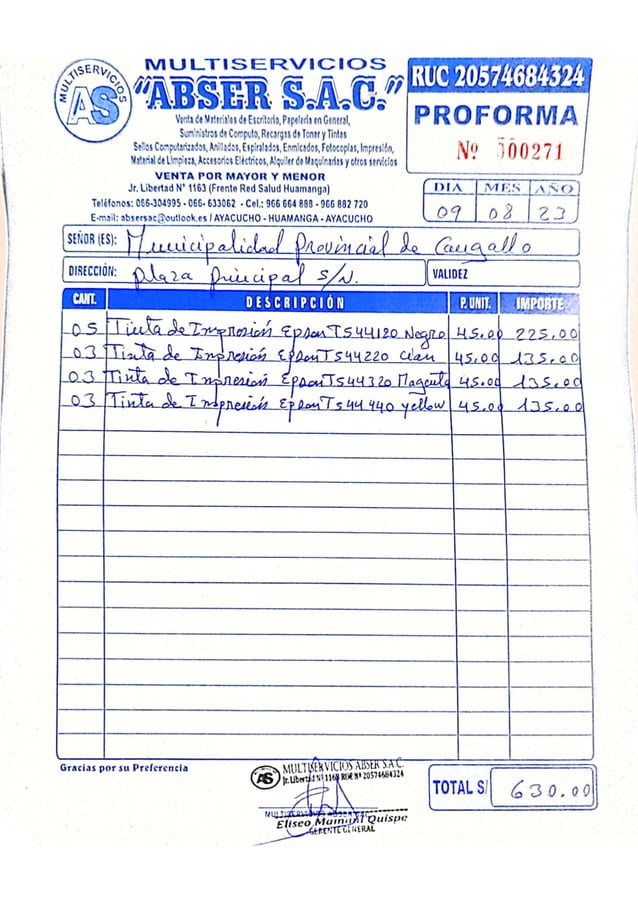 MULTISERVICIOS
AS
MULTISERVICIOS
"ABSER S.A.C."
Venta de Materiales de Escritorio, Papelería en General,
Suministros de Computo, Recargas de Toner y Tintas
Sellos Computarizados, Anillados, Espiralados, Enmicados, Fotocopias, Impresión,
Material de Limpieza, Accesorios Eléctricos, Alquiler de Maquinarias y otros servicios
VENTA POR MAYOR Y MENOR
Jr. Libertad N° 1163 (Frente Red Salud Huamanga)
Teléfonos: 066-304995 - 066- 633062 - Cel.: 966 664 888 - 966 882 720
E-mail: absersac@outlook.es / AYACUCHO - HUAMANGA - AYACUCHO
RUC 20574684324
PROFORMA
Nº 000271
DIA MES AÑO
09 08 23
SEÑOR (ES): Municipalidad Provincial de Cangallo
DIRECCIÓN: Plaza Principal S/N. VALIDEZ
CANT. DESCRIPCIÓN P. UNIT. IMPORTE
05 Tinta de Impresión Epson T544120 Negro 45.00 225.00
03 Tinta de Impresión Epson T544220 Cian 45.00 135.00
03 Tinta de Impresión Epson T544320 Magenta 45.00 135.00
03 Tinta de Impresión Epson T544440 yellow 45.00 135.00
Gracias por su Preferencia
AS MULTISERVICIOS ABSER S.A.C.
Jr. Libertad N° 1163 RUC N° 20574684324
MULTISERVICIOS ABSER SAC
Eliseo Mamani Quispe
GERENTE GENERAL
TOTAL S/ 630.00